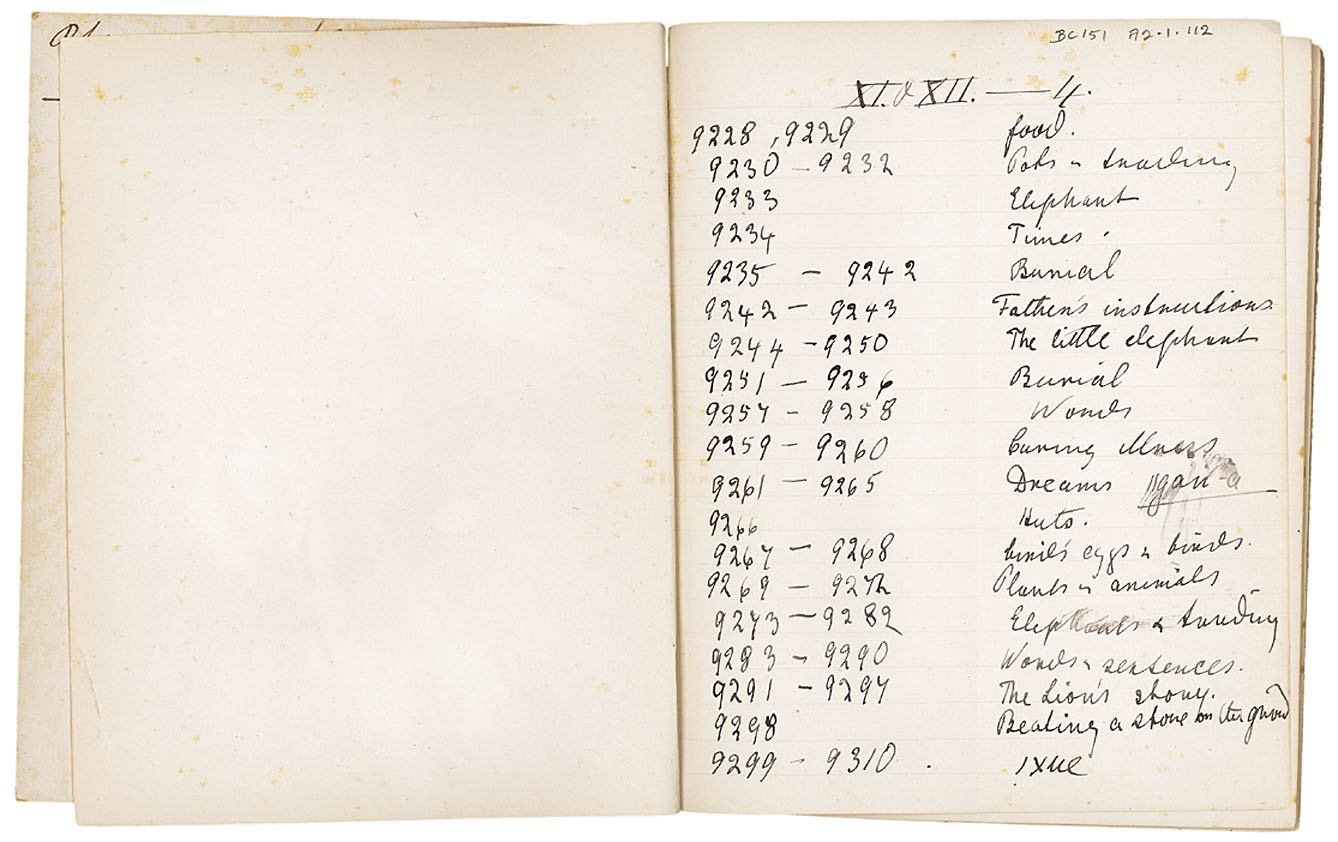 BC151 A2·1·112
XI. & XII. — 4.
9228, 9229 food.
9230 – 9232 Pots & trading
9233 Elephant
9234 Times.
9235 – 9242 Burial
9242 – 9243 Father's instructions
9244 – 9250 The little elephant
9251 – 9256 Burial
9257 – 9258 Words
9259 – 9260 Curing illness
9261 – 9265 Dreams
9266 Huts.
9267 – 9268 bird's eggs & birds.
9269 – 9272 Plants & animals
9273 – 9282 Elephants & trading
9283 – 9290 Words & sentences.
9291 – 9297 The Lion's story.
9298 Beating a stone on the ground
9299 – 9310. !xue